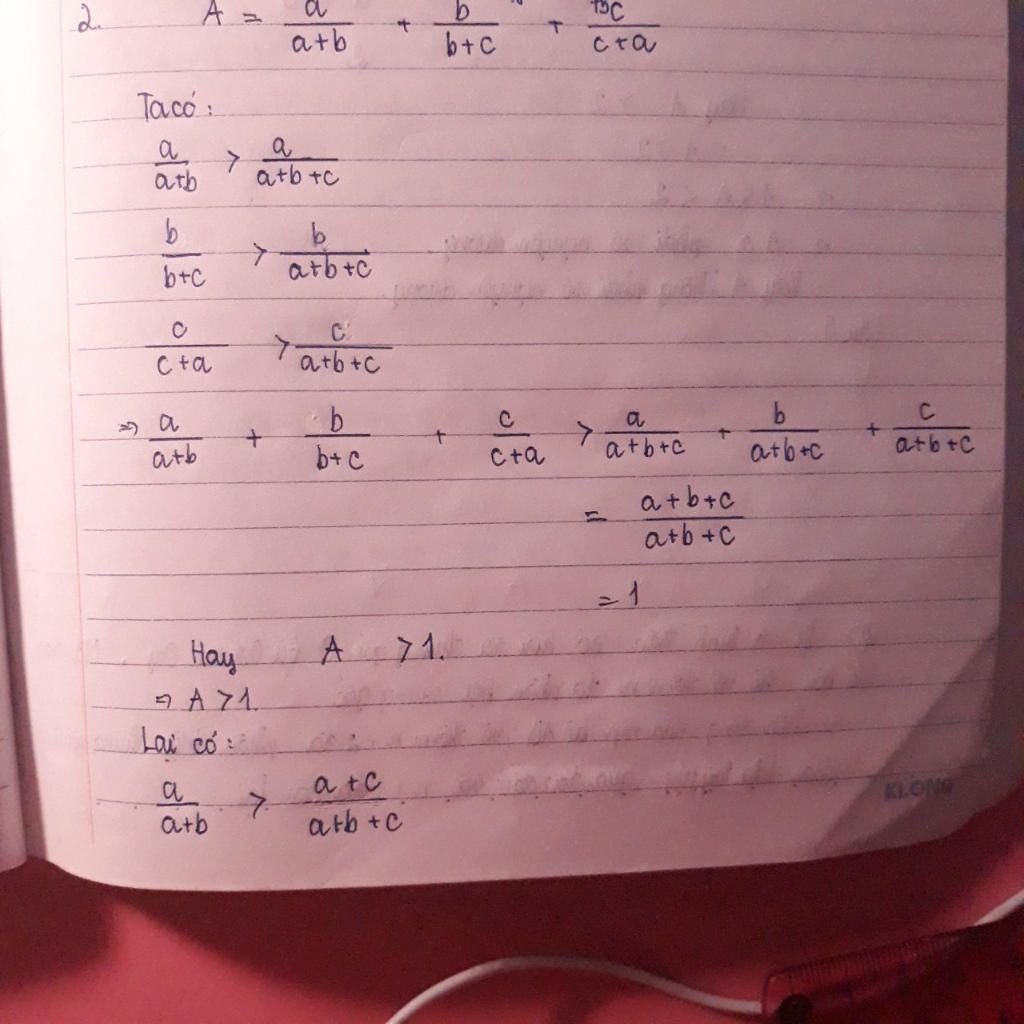 2. A = a/(a+b) + b/(b+c) + c/(c+a)
Ta có:
a/(a+b) > a/(a+b+c)
b/(b+c) > b/(a+b+c)
c/(c+a) > c/(a+b+c)
⇒ a/(a+b) + b/(b+c) + c/(c+a) > a/(a+b+c) + b/(a+b+c) + c/(a+b+c)
= (a+b+c)/(a+b+c)
= 1
Hay A > 1.
⇒ A > 1.
Lại có:
a/(a+b) > (a+c)/(a+b+c)
KLONG